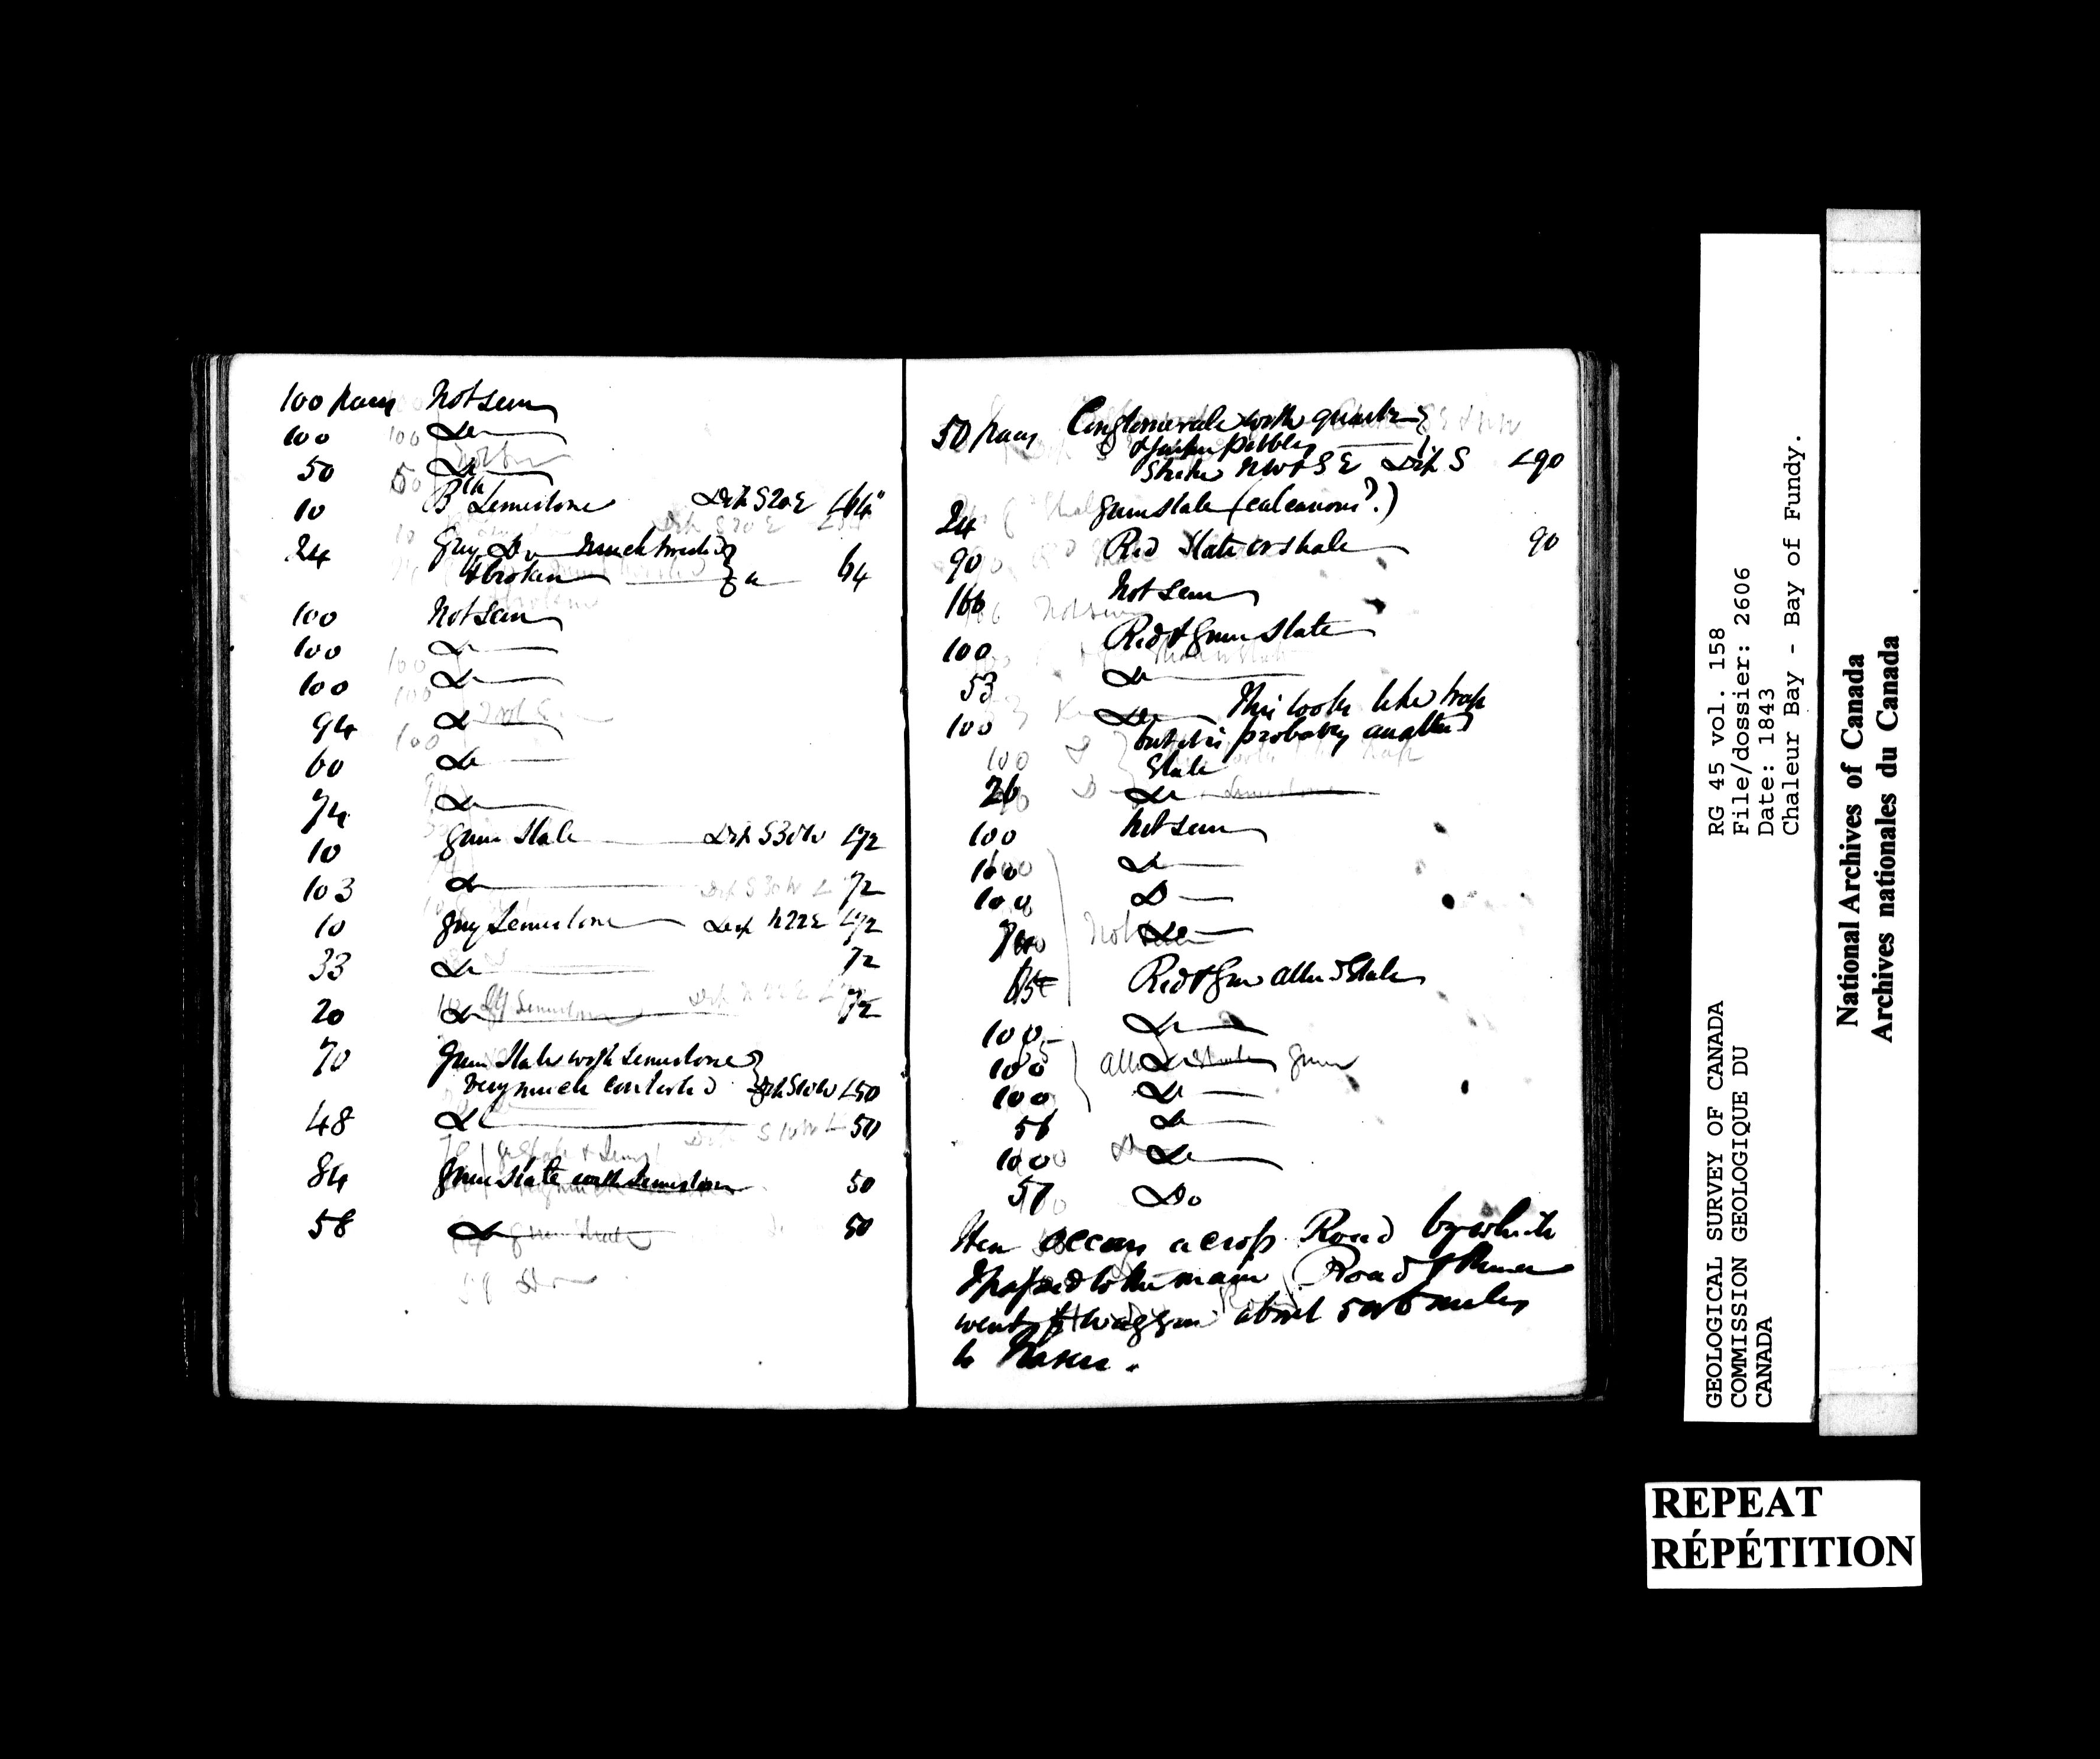 100 paces Not seen
100 Do
50 Do
10 Blk Limestone Dip S20E ∠64°
24 Grey Do much twisted
& broken " 64
100 Not seen
100 Do
100 Do
94 Do
60 Do
74 Do
10 Green Slate Dip S30W ∠72
103 Do 72
10 Grey Limestone Dip N22E ∠72
33 Do 72
20 Do 72
70 Green Slate with Limestone
very much contorted Dip S10W ∠50
48 Do 50
84 Green Slate with Limestone 50
58 Do 50
50 paces Conglomerate with quartz
& Jasper pebbles
Strike NW & SE Dip S ∠90
24 Green slate (calcareous?)
90 Red Slate or shale 90
166 Not seen
100 Red & Green Slate
53 Do
100 Do This looks like trap
but it is probably an altered
Slate
26 Do
100 Not seen
100 Do
100 Do
Do
Red & Green altered Slate
100 Do
100 Do
100 Do
56 Do
100 Do
57 Do
Here occurs a cross Road by which
I passed to the main Road & thence
went by waggon about 5 or 6 miles
to
GEOLOGICAL SURVEY OF CANADA
COMMISSION GEOLOGIQUE DU
CANADA
RG 45 vol. 158
File/dossier: 2606
Date: 1843
Chaleur Bay - Bay of Fundy.
National Archives of Canada
Archives nationales du Canada
REPEAT
RÉPÉTITION